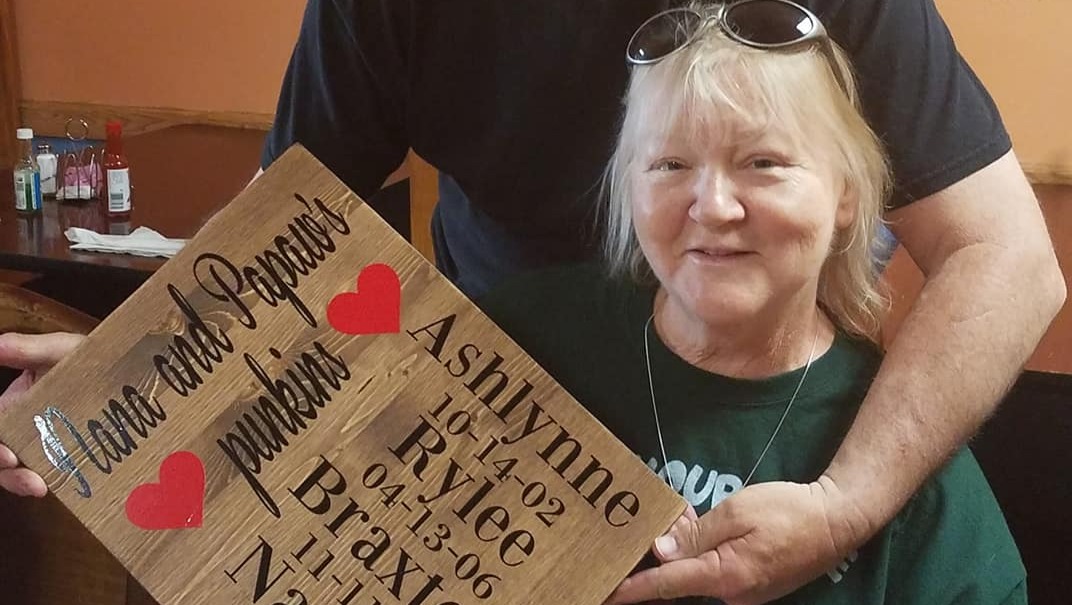 Nana and Papaw's
punkins
Ashlynne
10-14-02
Rylee
04-13-06
Braxt
11-1
Na
OUR